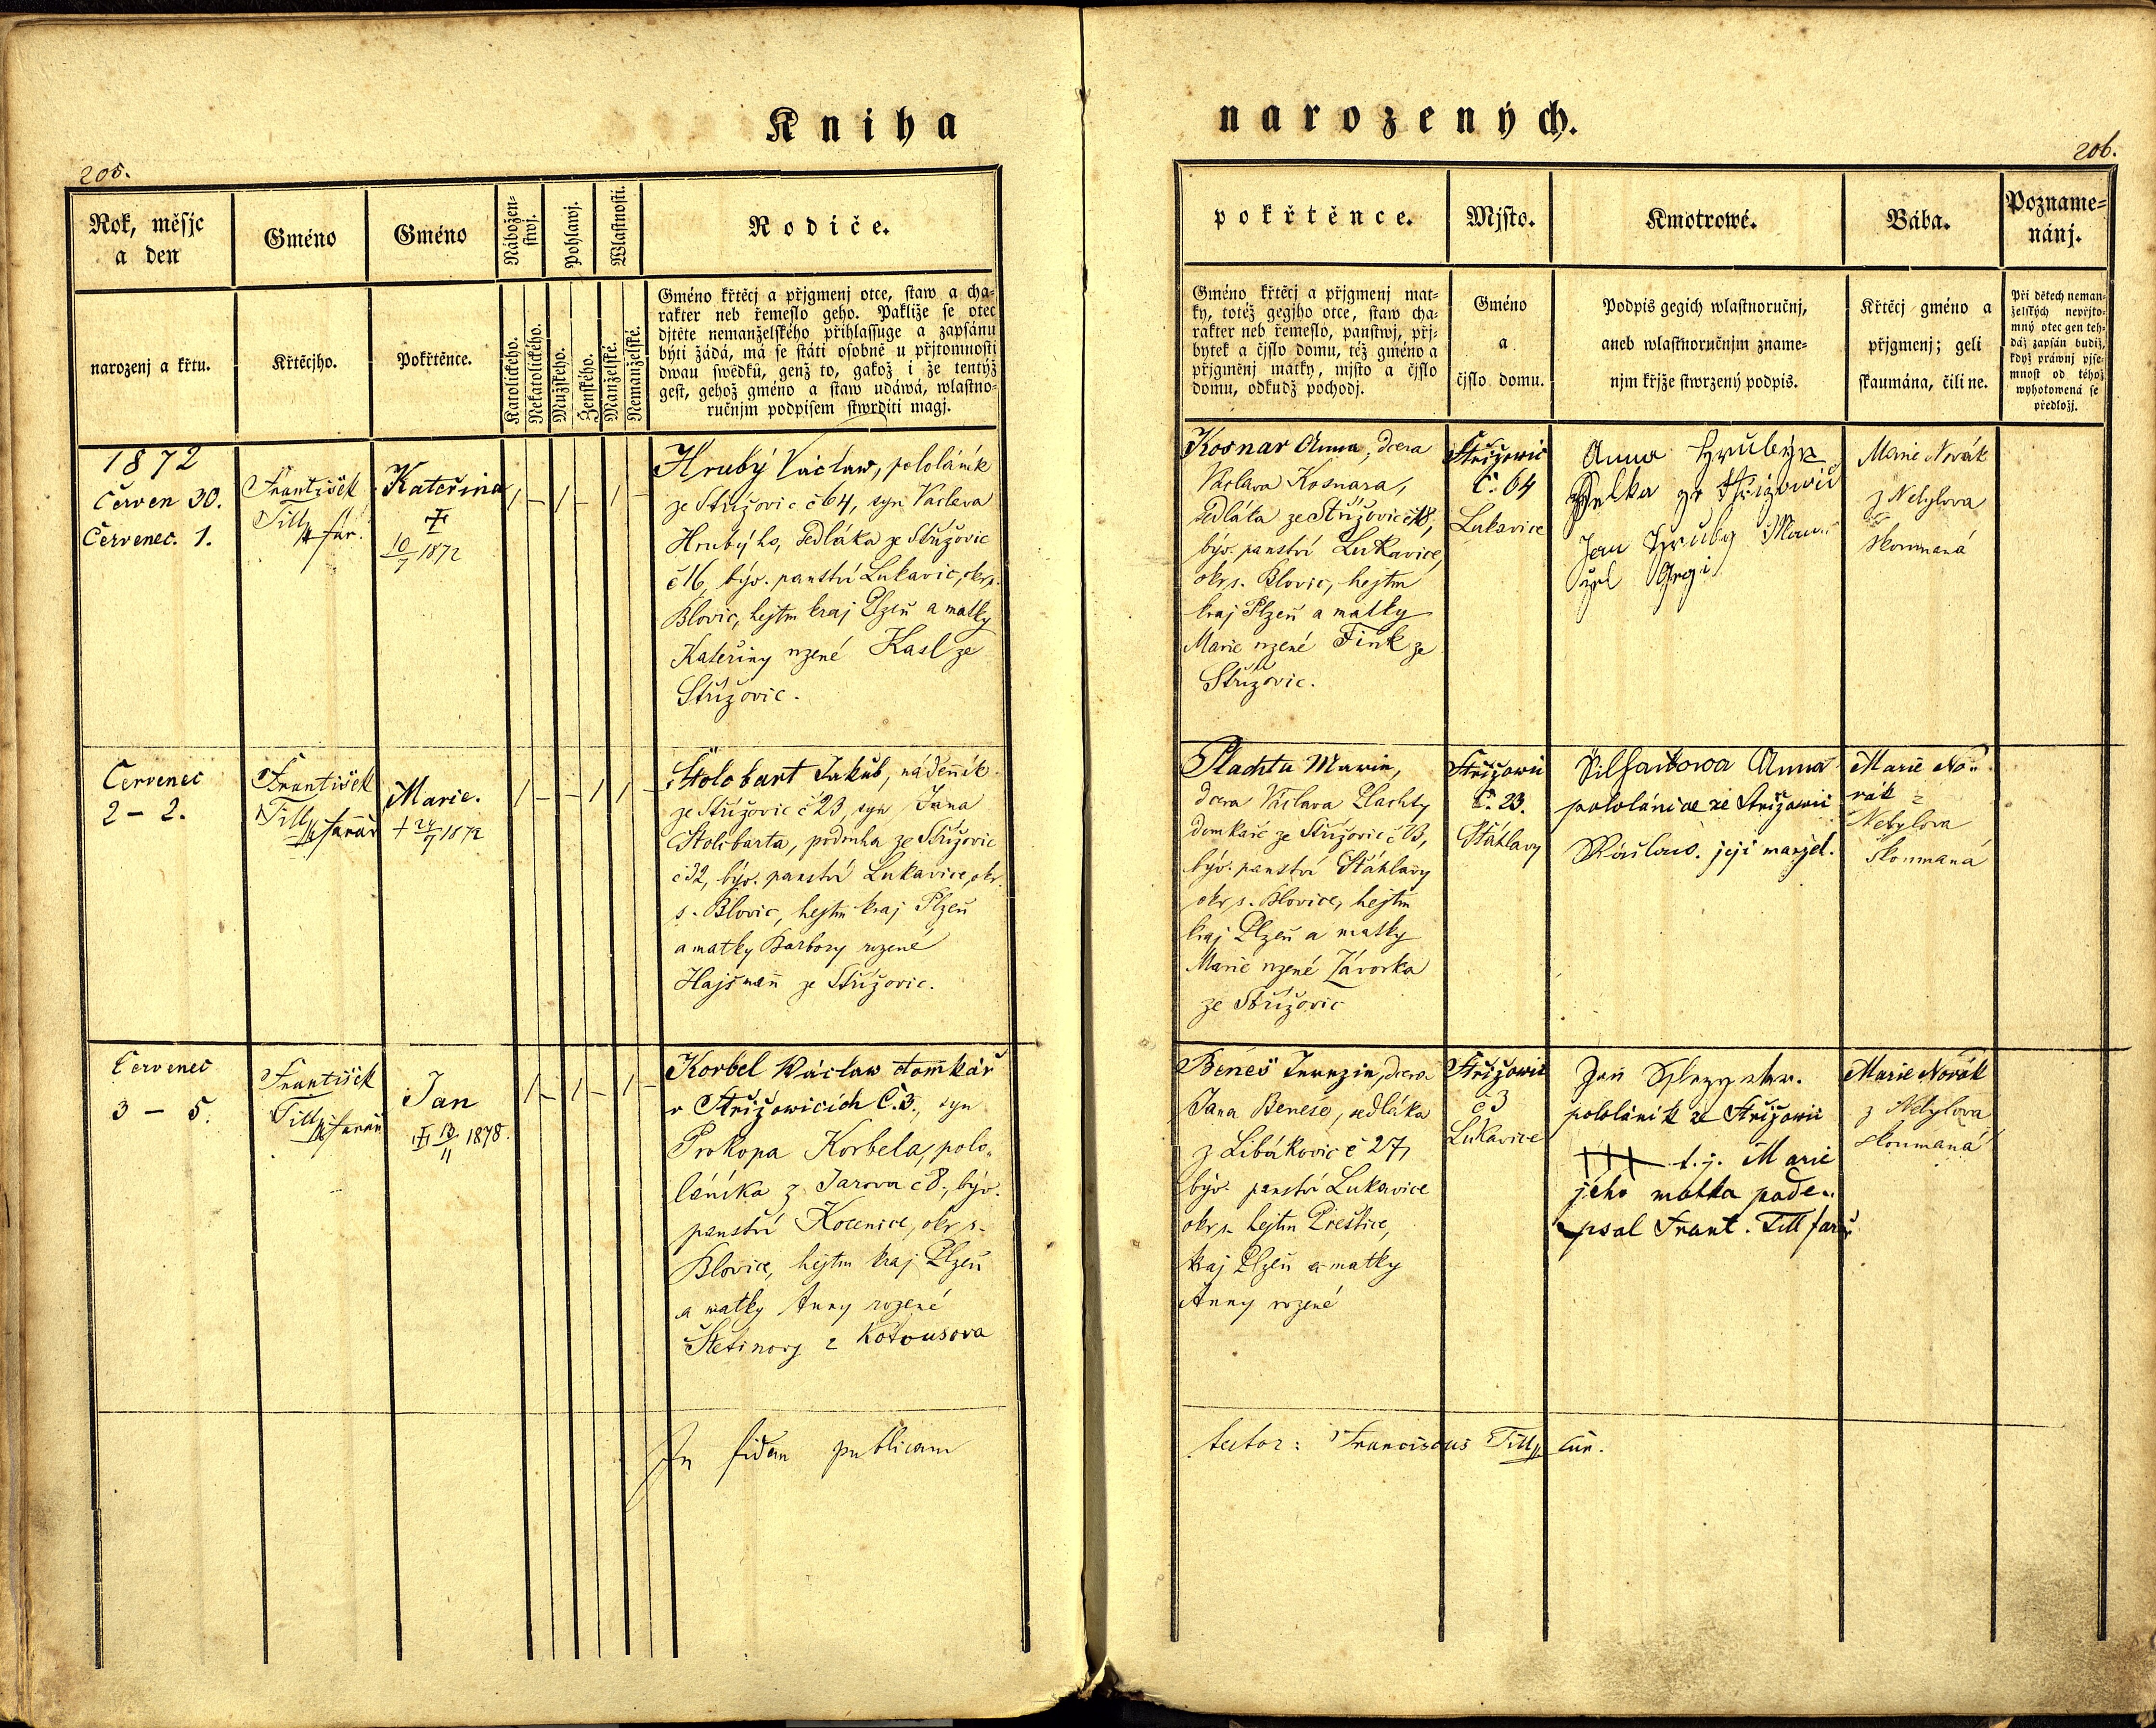 Kniha
205.
Rok, měsjc
a den
Gméno
Gméno
Nábožen-
stwj.
Pohlawj.
Wlastnosti.
Rodiče.
narozenj a křtu.
Křtěcjho.
Pokřtěnce.
Katolického.
Nekatolického.
Mužského.
Ženského.
Manželské.
Nemanželské.
Gméno křtěcj a přjgmenj otce, staw a cha-
rakter neb řemeslo geho. Pakliže se otec
djtěte nemanželského přihlassuge a zapsánu
býti žádá, má se státi osobně u přjtomnosti
dwau swědků, genž to, gakož i že tentýž
gest, gehož gméno a staw udáwá, wlastno-
ručnjm podpisem stwrditi magj.
1872
Červen 30.
Červenec. 1.
František
Till far.
Kateřina
10/7 1872
Hrubý Václaw, pololáník
ze Střižovic č 64, syn Václava
Hrubýho, sedláka ze Střižovic
č 16, býv. panství Lukavic, okr. s.
Blovic, hejtm kraj Plzeň a matky
Kateřiny rzené Kasl ze
Střižovic.
Červenec
2 – 2.
František
Till farář
Marie.
† 24/7 1872
Štolobart Jakub, nádenník
ze Střížovic č 23, syn Jana
Štolobarta, podruha ze Střižovic
č 32, býv. panství Lukavice, okr.
s. Blovic, hejtm kraj Plzeň
a matky Barbory rozené
Hajšman ze Střížovic.
Červenec
3 – 5.
František
Till farář
Jan
13/11 1878.
Korbel Wáclaw domkář
v Střížowicích Č. 3., syn
Prokopa Korbela, polo„
láníka z Jarova č 8., býv.
panství Kocenice, okr s.
Blovice, hejtm kraj Plzeň
a matky Anny rozené
Štetinovy z Kotousova
In fidem publicam
narozených.
206.
pokřtěnce.
Mjsto.
Kmotrowé.
Bába.
Pozname-
nánj.
Gméno křtěcj a přjgmenj mat-
ky, totéž gegjho otce, staw cha-
rakter neb řemeslo, panstwj, přj-
bytek a čjslo domu, též gméno a
přjgměnj mátky, mjsto a čjslo
domu, odkudž pochodj.
Gméno
a
čjslo domu.
Podpis gegich wlastnoručnj,
aneb wlastnoručnjm zname-
njm křjže stwrzený podpis.
Křtěcj gméno a
přjgmenj; geli
skaumána, čili ne.
Při dětech neman-
želských nepřjto-
mný otec gen teh-
dáž zapsán budiž,
když práwnj pjse-
mnost od téhož
wyhotowená se
předložj.
Kosnar Anna, dcera
Václava Kosnara,
sedláka ze Střížovic č 18,
býv. panství Lukavice,
okr s. Blovic, hejtm
kraj Plzeň a matky
Marie rzené Fink ze
Střížovic.
Střížowic
č. 64
Lukavice
Anna Hrubý
ze Střizowic
Jan Hrubý Man„
žel Gegi
Marie Novák
z Nebylova
skoumaná
Plachta Marie,
dcera Václava Plachty
domkáře ze Střížovic č 13,
býv. panství Štáhlavy
okr s. Blovice, hejtm
kraj Plzeň a matky
Marie rzené Závorka
ze Střížovic
Střížowic
č. 23.
Štáhlavy
Anna
pololánice ze Střížowic
její manžel.
Marie No„
vák z
Nebylova
Skoumaná
Beneš Terezie, dcera
Jana Beneše, sedláka
z Libákovic č 27,
býv. panství Lukavice
okr s. hejtm Přeštice,
kraj Plzeň a matky
Anny rozené
Střížowic
č 3
Lukavice
Jan
pololáník ze Střížowic
+++ t. j. Marie
jeho matka pode„
psal Frant. Till farář
Marie Novák
z Nebylova
skoumaná
testor: Franciscus Till cur.